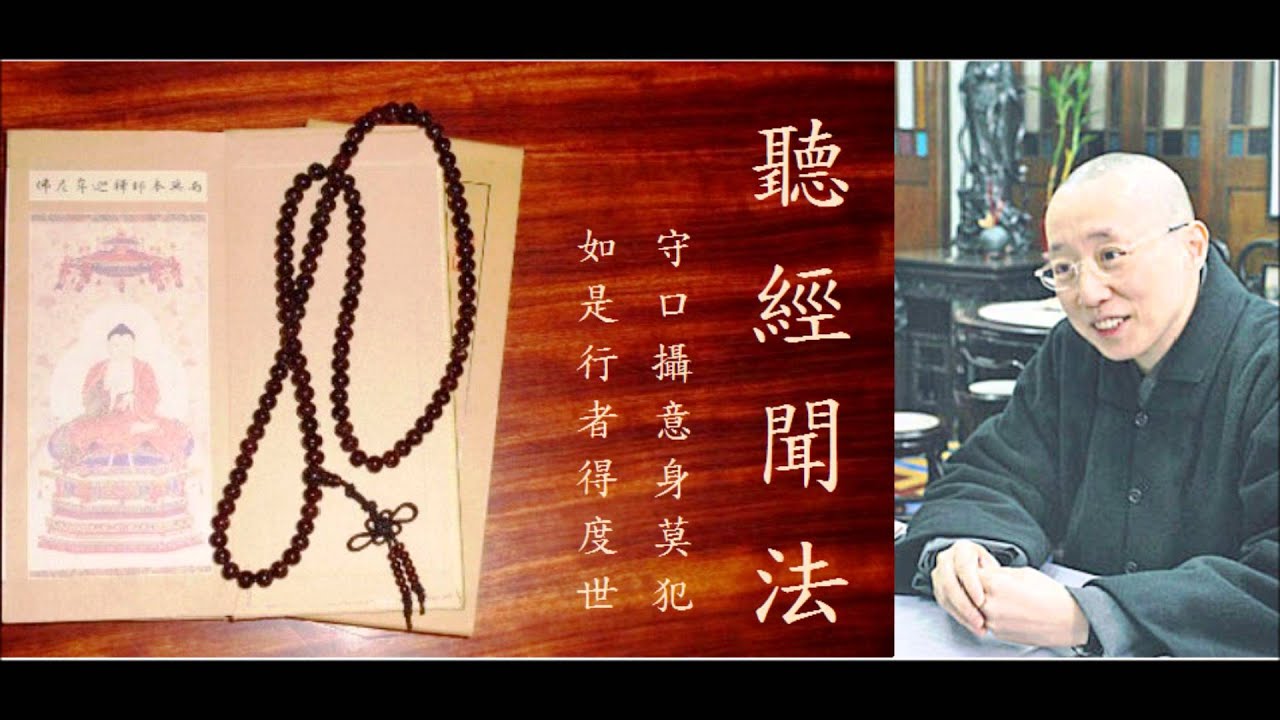 聽經聞法
守口攝意身莫犯
如是行者得度世
南無本師釋迦牟尼佛